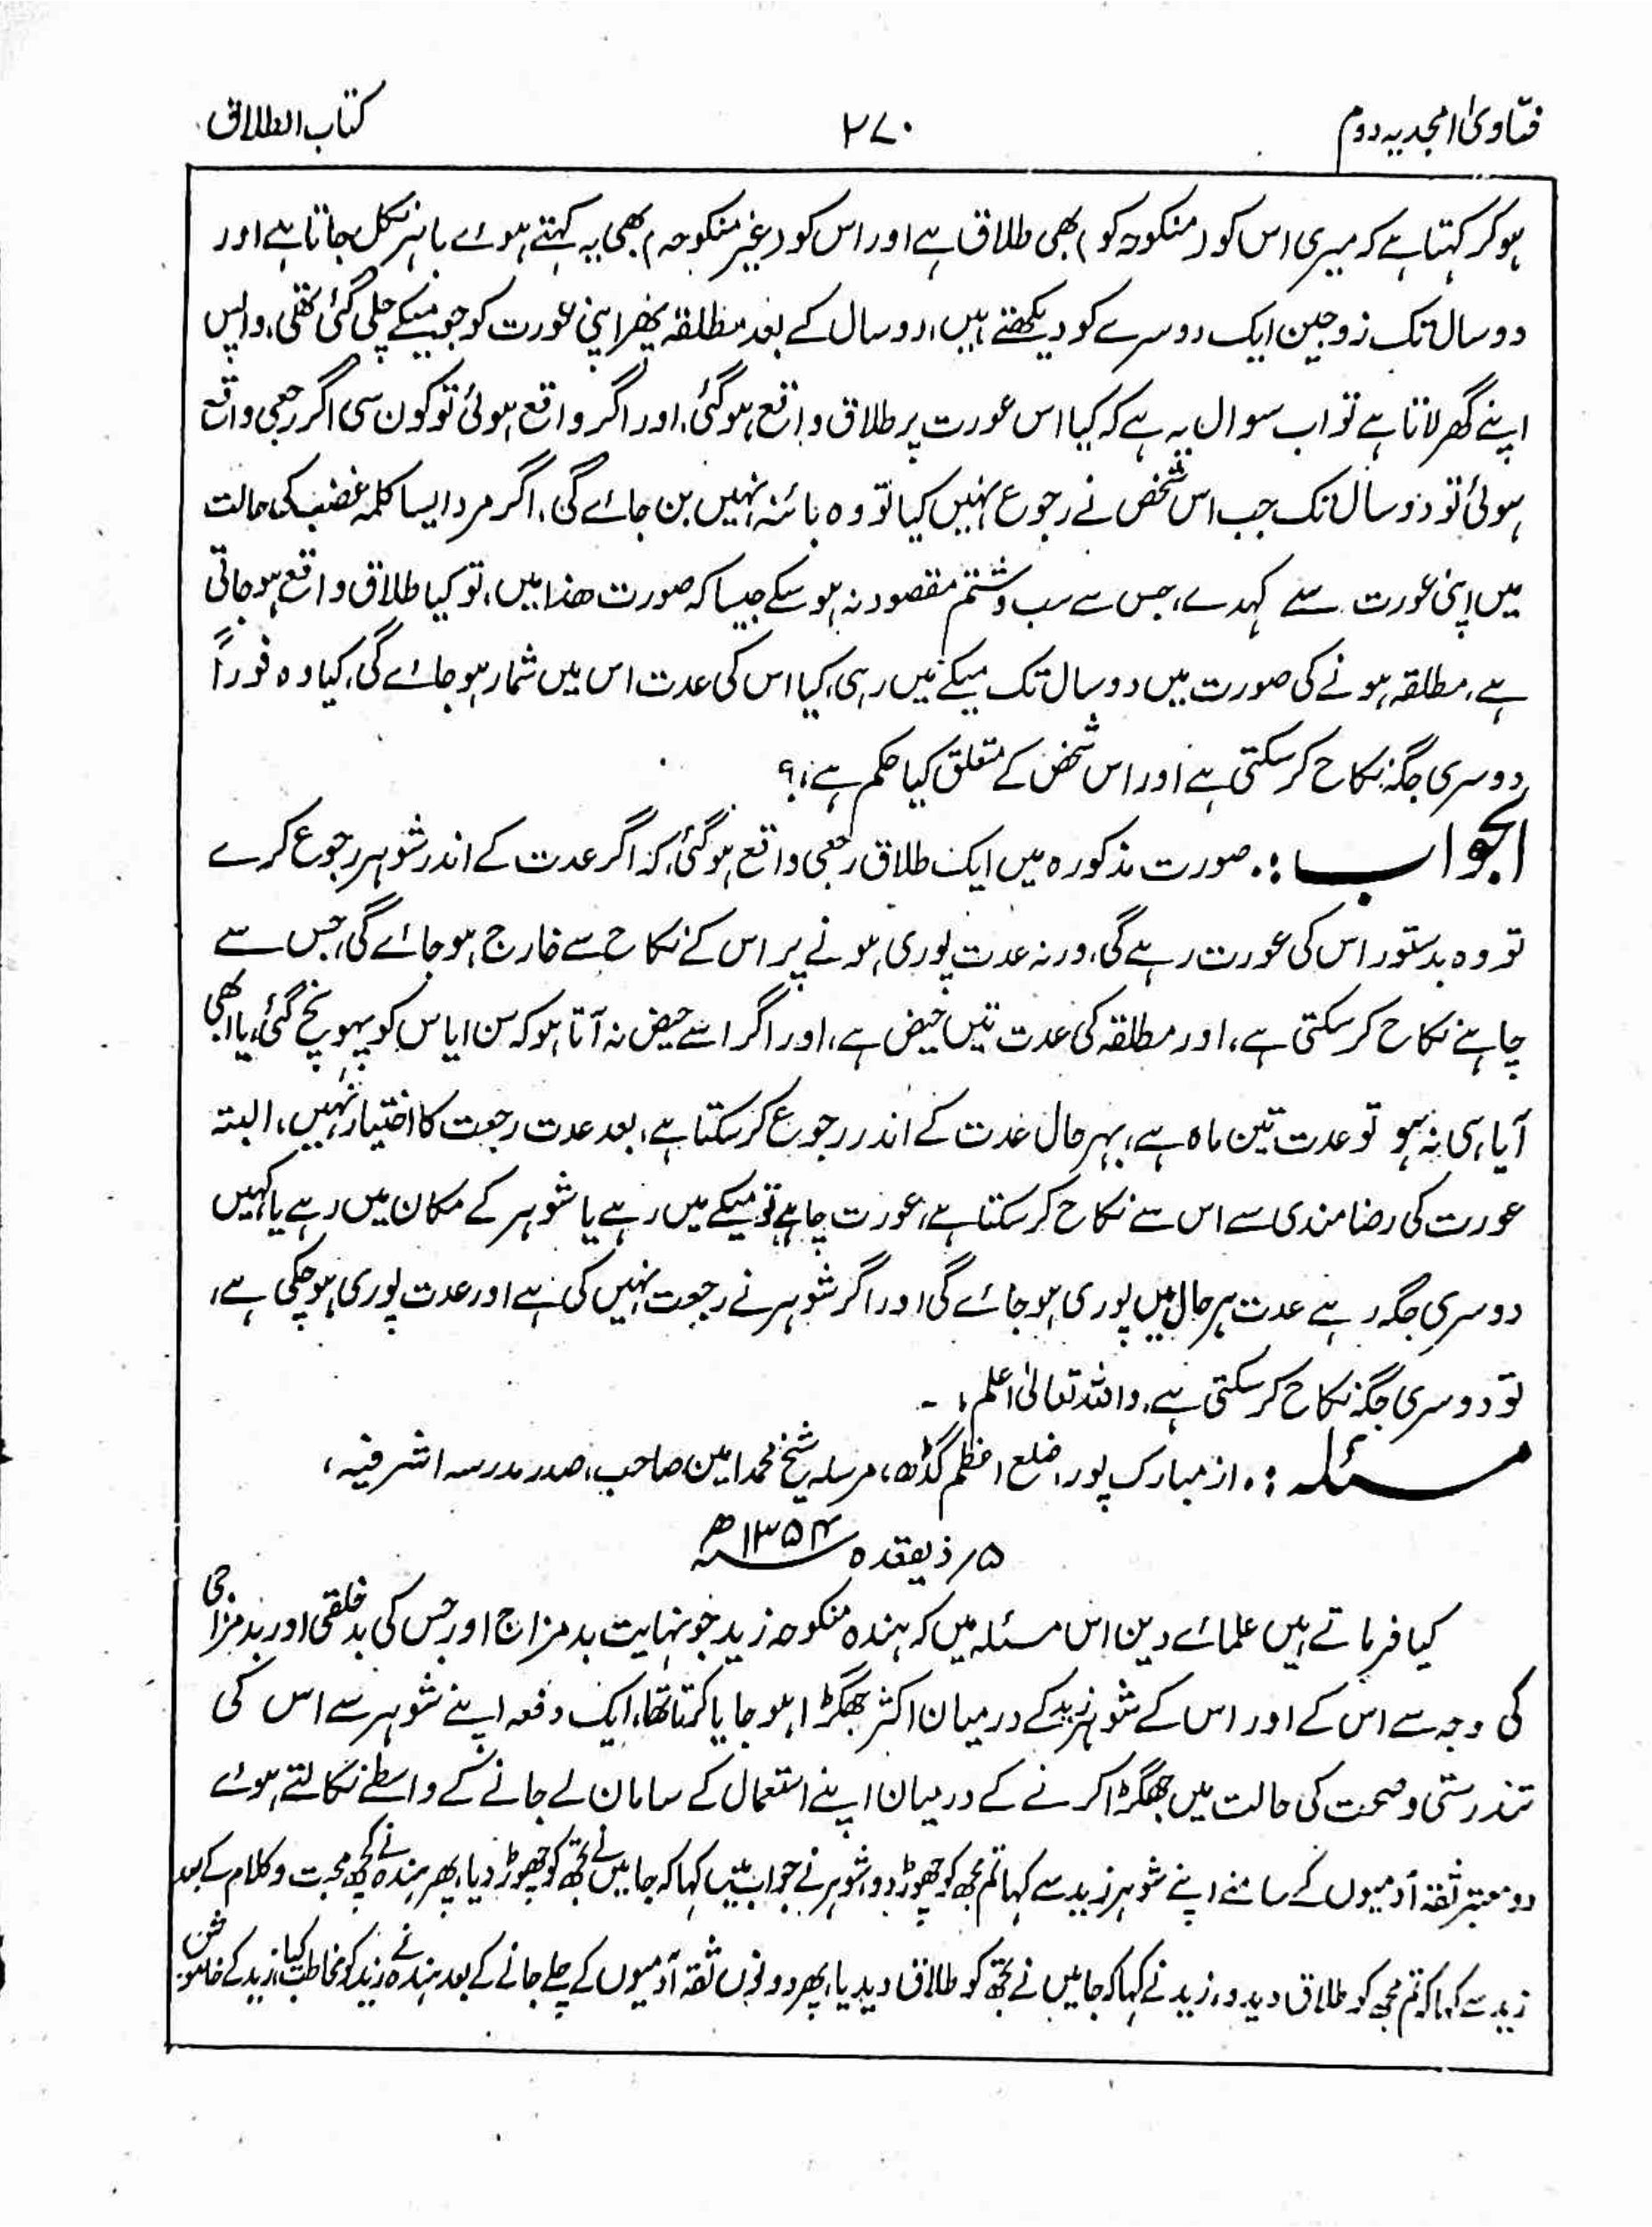 فتاویٰ امجدیہ دوم
۲۷۰
کتاب الطلاق
ہوکر کہتا ہے کہ میری اس کو (منکوحہ کو) بھی طلاق ہے اور اس کو (غیر منکوحہ) بھی یہ کہتے ہوئے باہر نکل جاتا ہے اور
دو سال تک زوجین ایک دوسرے کو دیکھتے ہیں، دو سال کے بعد مطلقہ پھر اپنی عورت کو جو میکے چلی گئی تھی، واپس
اپنے گھر لاتا ہے تو اب سوال یہ ہے کہ کیا اس عورت پر طلاق واقع ہوگئی، اور اگر واقع ہوئی تو کون سی اگر رجعی واقع
ہوئی تو دو سال تک جب اس شخص نے رجوع نہیں کیا تو وہ بائنہ نہیں بن جائے گی، اگر مرد ایسا کلمہ غضب کی حالت
میں اپنی عورت سے کہدے، جس سے سب و شتم مقصود نہ ہو سکے جیسا کہ صورت ھذا میں، تو کیا طلاق واقع ہو جاتی
ہے، مطلقہ ہونے کی صورت میں دو سال تک میکے میں رہی، کیا اس کی عدت اس میں شمار ہو جائے گی، کیا وہ فوراً
دوسری جگہ نکاح کر سکتی ہے اور اس شخص کے متعلق کیا حکم ہے؟
الجواب :۔ صورت مذکورہ میں ایک طلاق رجعی واقع ہوگئی، کہ اگر عدت کے اندر شوہر رجوع کرے
تو وہ بدستور اس کی عورت رہے گی، ورنہ عدت پوری ہونے پر اس کے نکاح سے خارج ہو جائے گی، جس سے
چاہے نکاح کر سکتی ہے، اور مطلقہ کی عدت تین حیض ہے، اور اگر اسے حیض نہ آتا ہو کہ سن ایاس کو پہونچ گئی، یا ابھی
آیا ہی نہ ہو تو عدت تین ماہ ہے، بہر حال عدت کے اندر رجوع کر سکتا ہے، بعد عدت رجعت کا اختیار نہیں، البتہ
عورت کی رضامندی سے اس سے نکاح کر سکتا ہے، عورت چاہے تو میکے میں رہے یا شوہر کے مکان میں رہے یا کہیں
دوسری جگہ رہے عدت ہر حال میں پوری ہو جائے گی اور اگر شوہر نے رجعت نہیں کی ہے اور عدت پوری ہو چکی ہے،
تو دوسری جگہ نکاح کر سکتی ہے، واللہ تعالیٰ اعلم، -
مسئلہ :۔ از مبارک پور، ضلع اعظم گڈھ، مرسلہ شیخ محمد امین صاحب، صدر مدرسہ اشرفیہ،
۵؍ ذیقعدہ ۱۳۵۴ھ
کیا فرماتے ہیں علمائے دین اس مسئلہ میں کہ ہندہ منکوحہ زید جو نہایت بد مزاج اور جس کی بد خلقی اور بد مزاجی
کی وجہ سے اس کے اور اس کے شوہر زید کے درمیان اکثر جھگڑا ہو جایا کرتا تھا، ایک دفعہ اپنے شوہر سے اس کی
تندرستی و صحت کی حالت میں جھگڑا کرنے کے درمیان اپنے استعمال کے سامان لے جانے کے واسطے نکالتے ہوئے
دو معتبر ثقہ آدمیوں کے سامنے اپنے شوہر زید سے کہا تم مجھ کو چھوڑ دو، شوہر نے جواب میں کہا کہ جا میں نے تجھ کو چھوڑ دیا، پھر ہندہ نے کچھ محبت و کلام کے بعد
زید سے کہا کہ تم مجھ کو طلاق دیدو، زید نے کہا کہ جا میں نے تجھ کو طلاق دیدیا، پھر دونوں ثقہ آدمیوں کے چلے جانے کے بعد ہندہ نے زید کو مخاطب کیا، زید کے خاموش